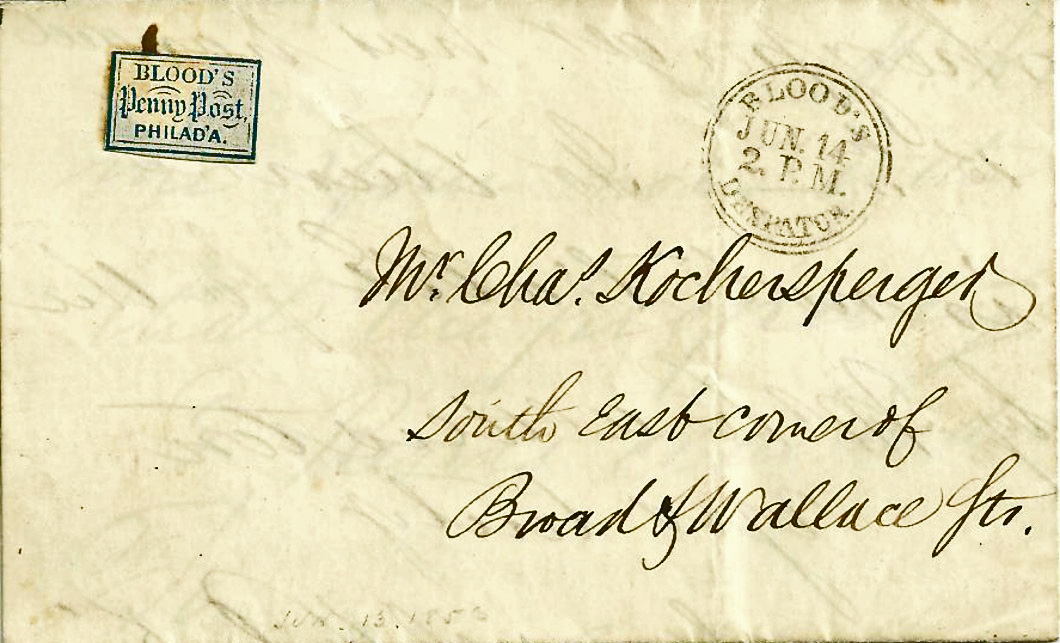 BLOOD'S
Penny Post,
PHILAD'A.
BLOOD'S
JUN. 14
2. P.M.
DESPATCH
Mr. Chas. Kochersperger
South East corner of
Broad & Wallace Sts.
JUN. 13. 185